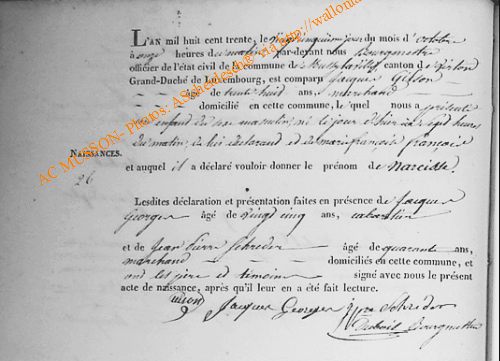 L'AN mil huit cent trente, le vingt cinquième jour du mois d'octobre
à onze heures du matin par-devant nous Bourgmestre
officier de l'état civil de la commune de canton de Virton
Grand-Duché de Luxembourg, est comparu Jacques Gilson
âgé de trente huit ans, marchand
domicilié en cette commune, le quel nous a présenté
un enfant du sexe masculin, né le jour d'hier à sept heures
du matin, de lui déclarant et de marie françoise françois
NAISSANCES.
et auquel il a déclaré vouloir donner le prénom de narcisse.
26
Lesdites déclaration et présentation faites en présence de Jacques
Georges âgé de vingt cinq ans, cabaretier
et de Jean Pierre Schreder âgé de quarante ans,
marchand domiciliés en cette commune, et
ont les père et temoins signé avec nous le présent
acte de naissance, après qu'il leur en a été fait lecture.
Jacques Georges Schreder
Bourgmestre
AC MUSSON- Photos: ASchreder via http://wallonia